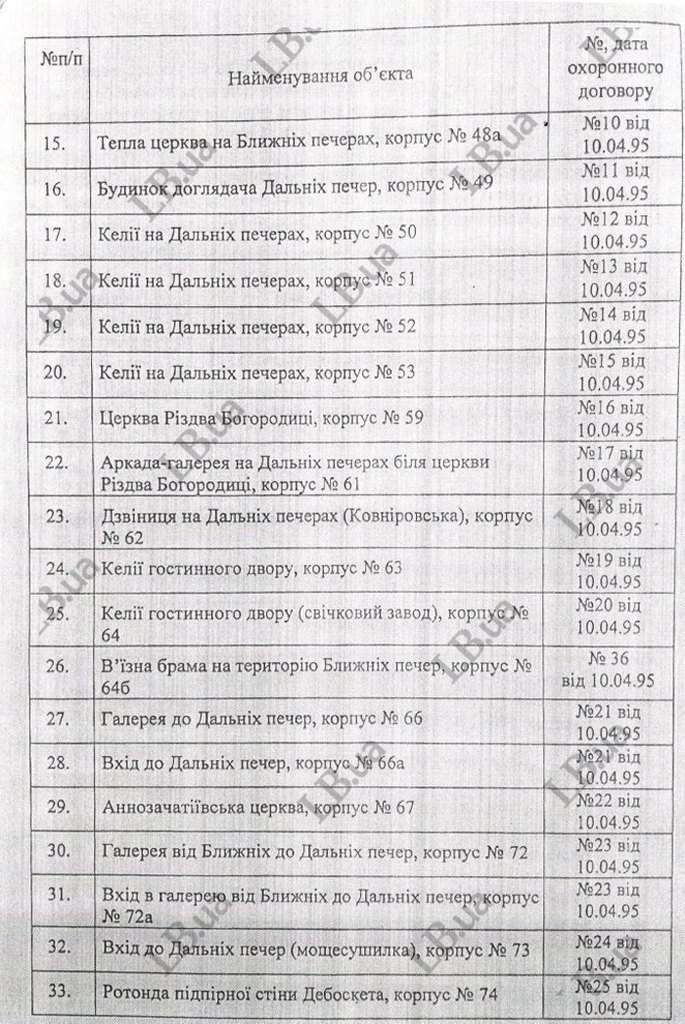 №п/п
Найменування об’єкта
№, дата
охоронного
договору
15.
Тепла церква на Ближніх печерах, корпус № 48а
№10 від
10.04.95
16.
Будинок доглядача Дальніх печер, корпус № 49
№11 від
10.04.95
17.
Келії на Дальніх печерах, корпус № 50
№12 від
10.04.95
18.
Келії на Дальніх печерах, корпус № 51
№13 від
10.04.95
19.
Келії на Дальніх печерах, корпус № 52
№14 від
10.04.95
20.
Келії на Дальніх печерах, корпус № 53
№15 від
10.04.95
21.
Церква Різдва Богородиці, корпус № 59
№16 від
10.04.95
22.
Аркада-галерея на Дальніх печерах біля церкви
Різдва Богородиці, корпус № 61
№17 від
10.04.95
23.
Дзвіниця на Дальніх печерах (Ковніровська), корпус
№ 62
№18 від
10.04.95
24.
Келії гостинного двору, корпус № 63
№19 від
10.04.95
25.
Келії гостинного двору (свічковий завод), корпус №
64
№20 від
10.04.95
26.
В’їзна брама на територію Ближніх печер, корпус №
64б
№ 36
від 10.04.95
27.
Галерея до Дальніх печер, корпус № 66
№21 від
10.04.95
28.
Вхід до Дальніх печер, корпус № 66а
№21 від
10.04.95
29.
Аннозачатіївська церква, корпус № 67
№22 від
10.04.95
30.
Галерея від Ближніх до Дальніх печер, корпус № 72
№23 від
10.04.95
31.
Вхід в галерею від Ближніх до Дальніх печер, корпус
№ 72а
№23 від
10.04.95
32.
Вхід до Дальніх печер (мощесушилка), корпус № 73
№24 від
10.04.95
33.
Ротонда підпірної стіни Дебоскета, корпус № 74
№25 від
10.04.95
LB.ua